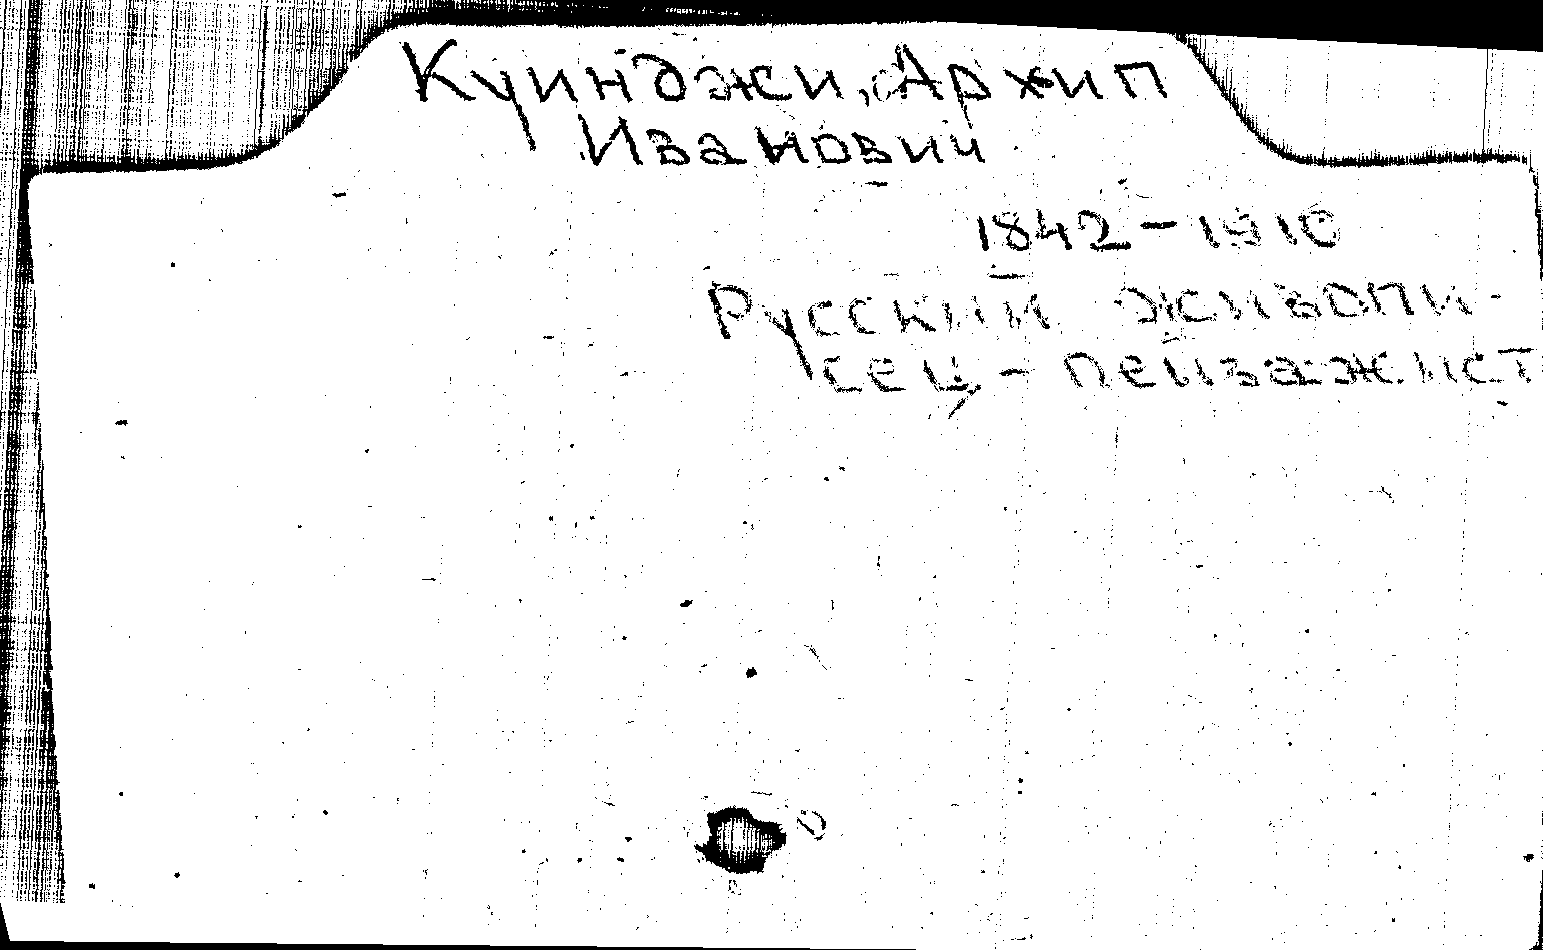 Куинджи, Архип
Иванович
1842 - 1910
Русский живопи-
сец - пейзажист